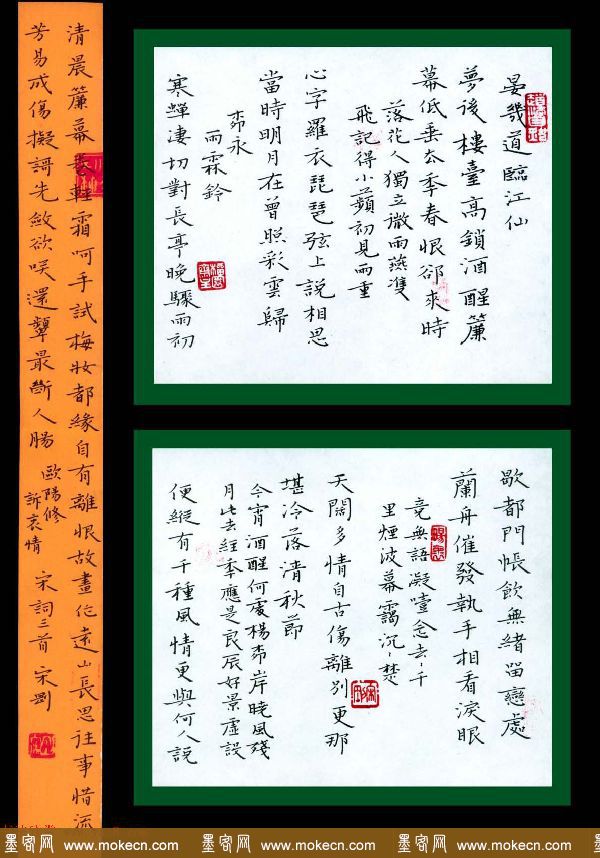 晏幾道臨江仙
夢後樓臺高鎖酒醒簾
幕低垂去年春恨卻來時
落花人獨立微雨燕雙
飛記得小蘋初見兩重
心字羅衣琵琶弦上說相思
當時明月在曾照彩雲歸
柳永
雨霖鈴
寒蟬淒切對長亭晚驟雨初
歇都門帳飲無緒留戀處
蘭舟催發執手相看淚眼
竟無語凝噎念去〻千
里煙波幕靄沉〻楚
天闊多情自古傷離別更那
堪冷落清秋節
今宵酒醒何處楊柳岸曉風殘
月此去經年應是良辰好景虛設
便縱有千種風情更與何人說
清晨簾幕卷輕霜呵手試梅妝都緣自有離恨故畫作遠山長思往事惜流
芳易成傷擬謌先斂欲咲還顰最斷人腸
歐陽修
訴衷情
宋詞三首 宋劉
墨客网 www.mokecn.com 墨客网 www.mokecn.com 墨客网 www.mokecn.com